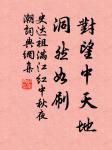 對望中天地
洞然如刷
史達祖滿江紅中秋夜
潮詞典網集